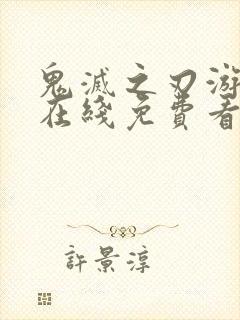 鬼滅之刃游
在綫免費看
許景淳